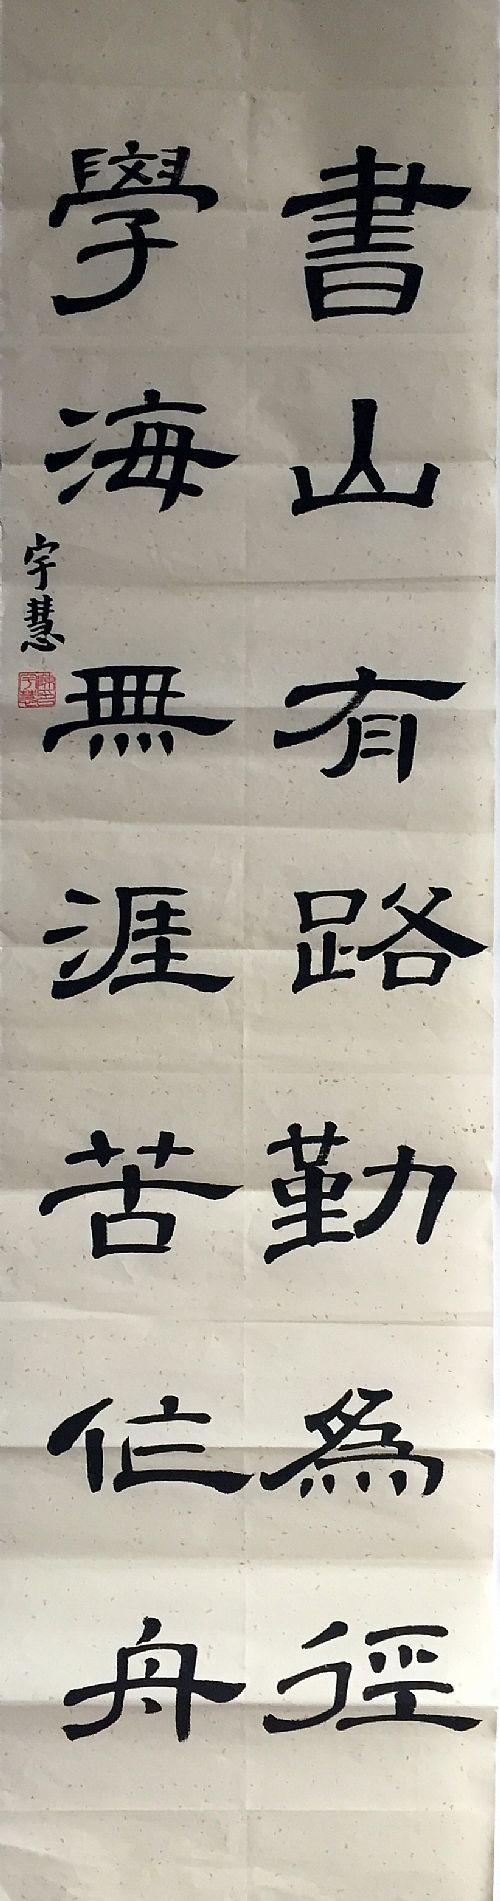 書山有路勤為徑
學海無涯苦作舟
宇慧